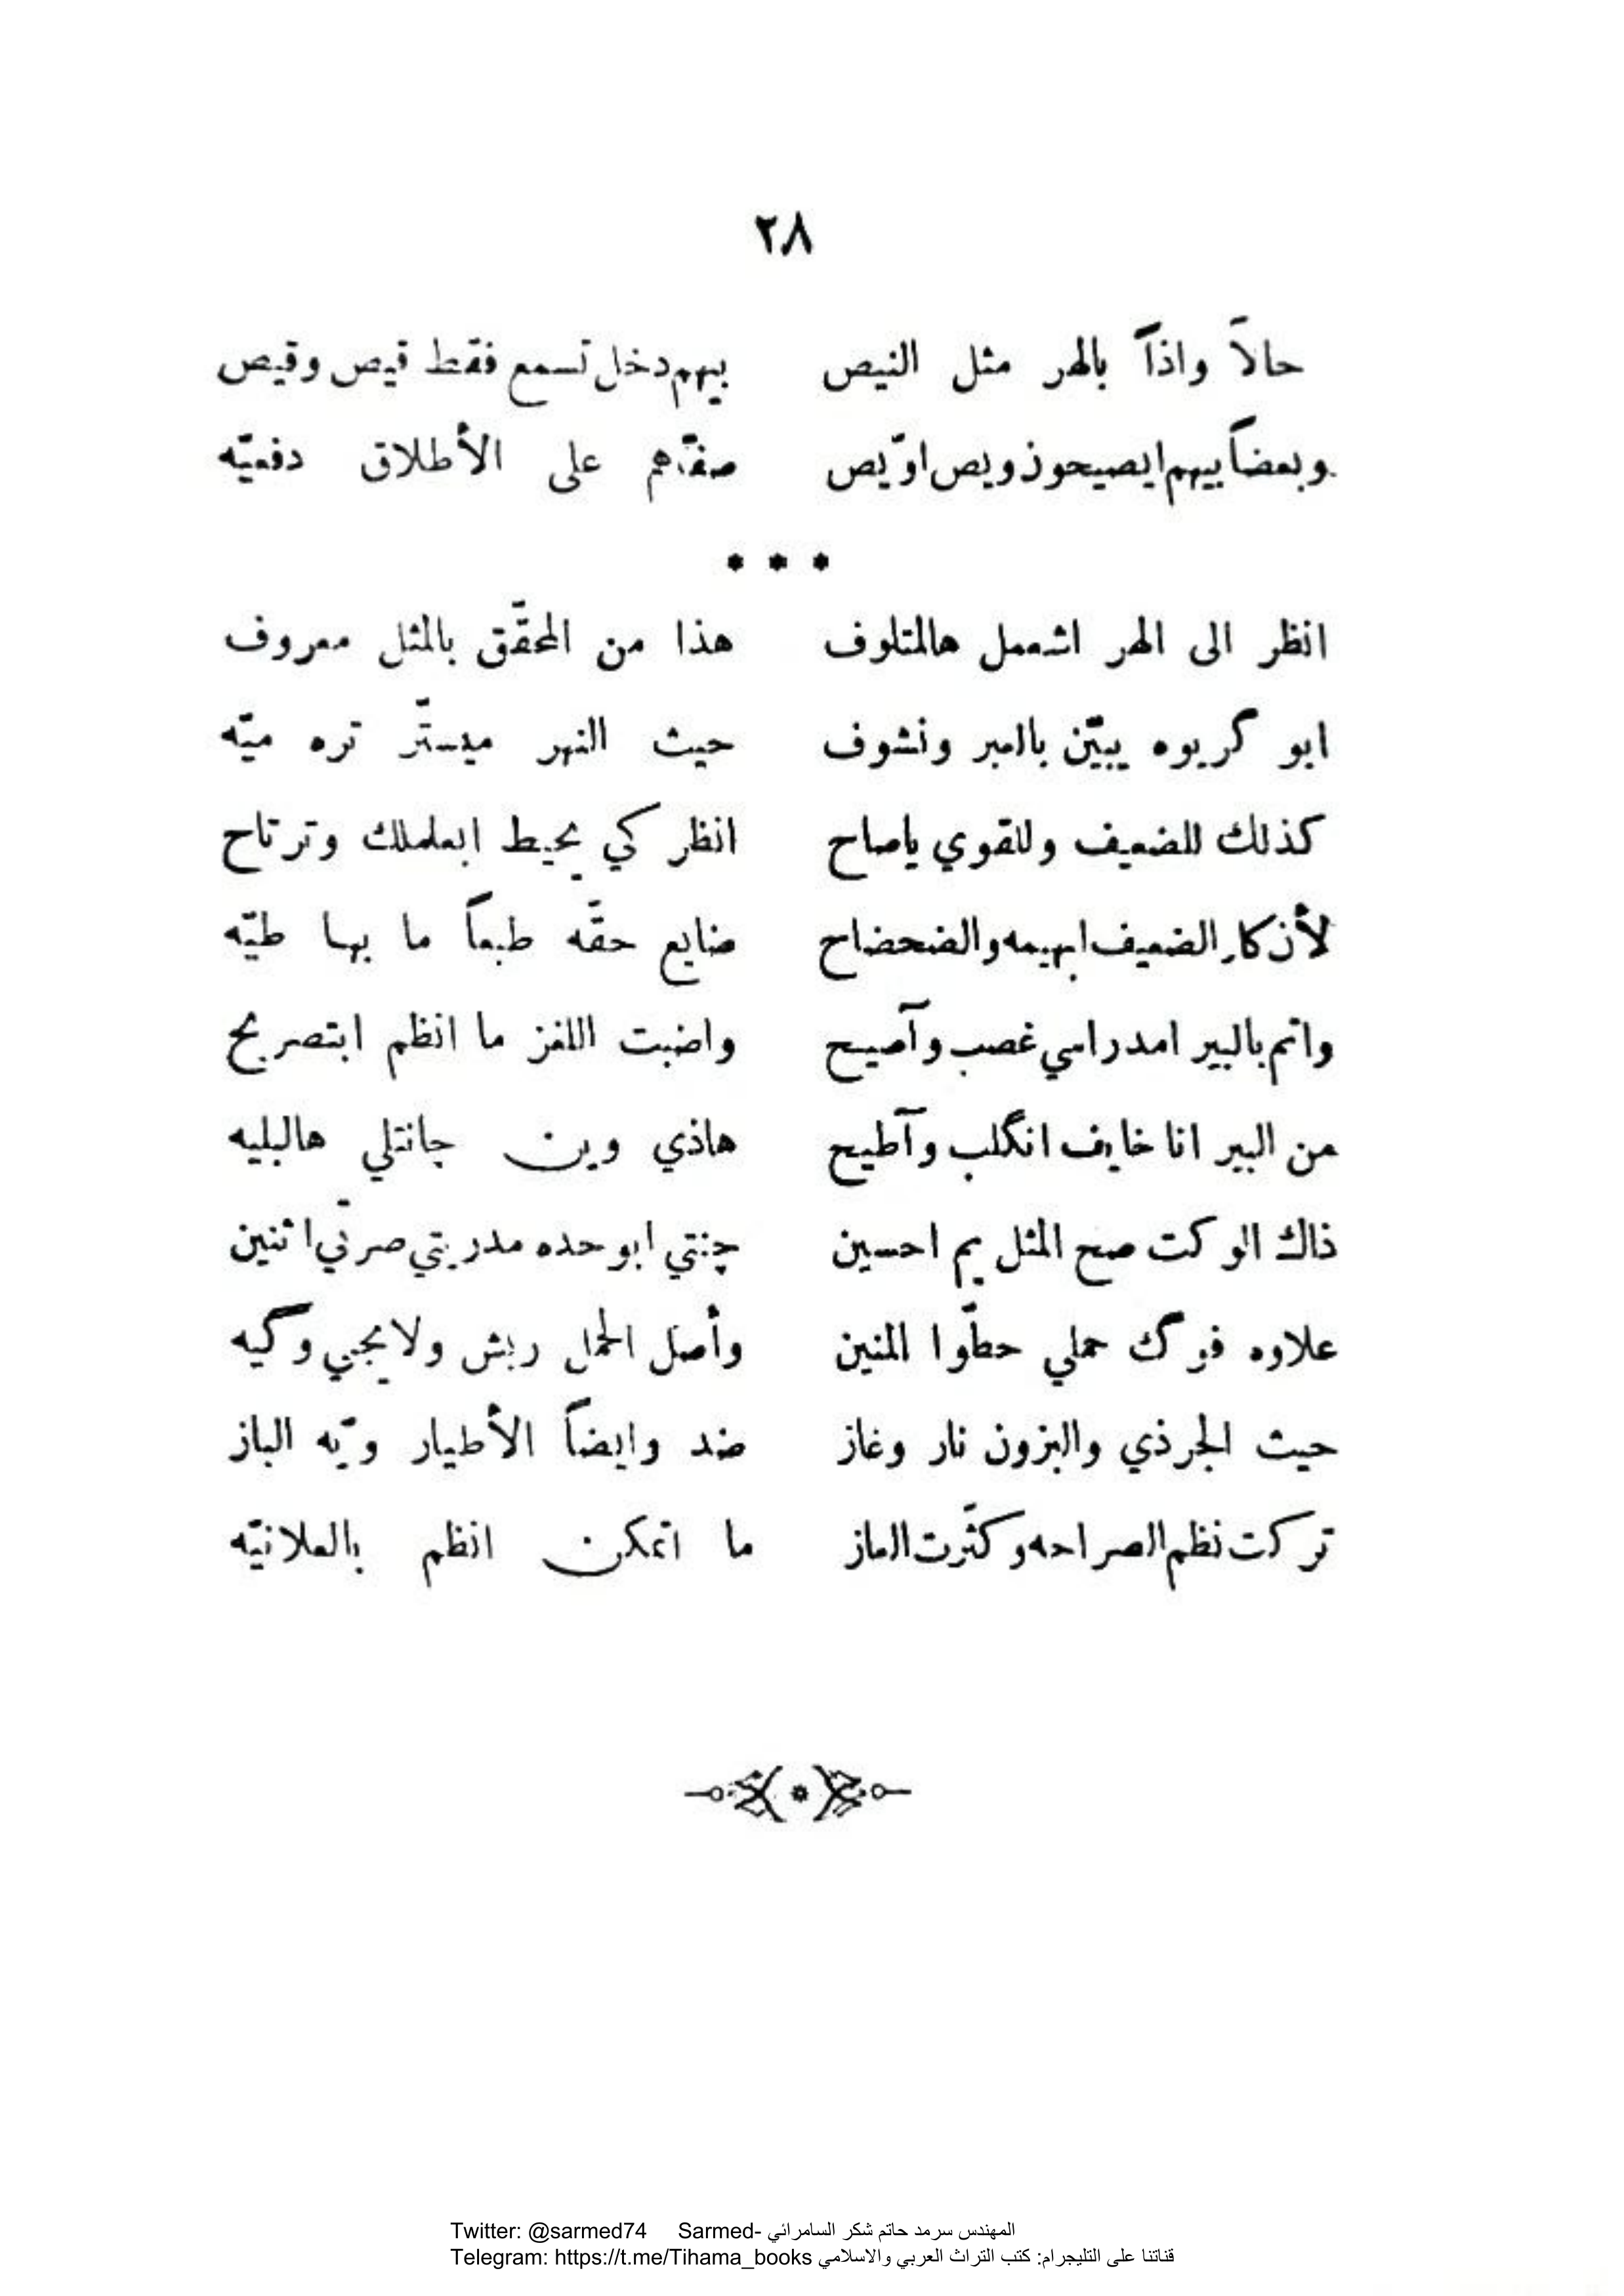 ٢٨
حالاً واذاً بالهر مثل النيص بيهم دخل تسمع فقط قيص وقيص
وبعضاً بيهم ايصيحون ويص اوّيص صفّاهم على الأطلاق دفعيّه
* * *
انظر الى الهر اشعمل هالمتلوف هذا من المحقّق بالمثل معروف
ابو گريوه يبيّن بالعبر ونشوف حيث النهر ميستّر تره ميّه
كذلك للضعيف وللقوي ياصاح انظر كي يحيط ابعلمك وترتاح
لأن كار الضعيف ابهيمه والضحضاح ضايع حقّه طبعاً ما بها طيّه
واتم بالبير امدر امي غصب وآصيح واضبت اللغز ما انظم ابتصريح
من البير انا خايف انگلب وآطيح هاذي وين چانتلي هالبليه
ذاك الوكت صح المثل يم احسين چنتي ابوحده مدريتي صرتي اثنين
علاوه فوگ حملي حطّوا المنين وأصل الحمال ربش ولا يجبي وگيه
حيث الجرذي والبزون نار وغاز ضد وايضاً الأطيار ويّه الباز
تركت نظم الصراحه وكثّرت الغاز ما اتمكن انظم بالعلانيّه
Twitter: @sarmed74 Sarmed- المهندس سرمد حاتم شكر السامرائي
Telegram: https://t.me/Tihama_books قناتنا على التليجرام: كتب التراث العربي والاسلامي